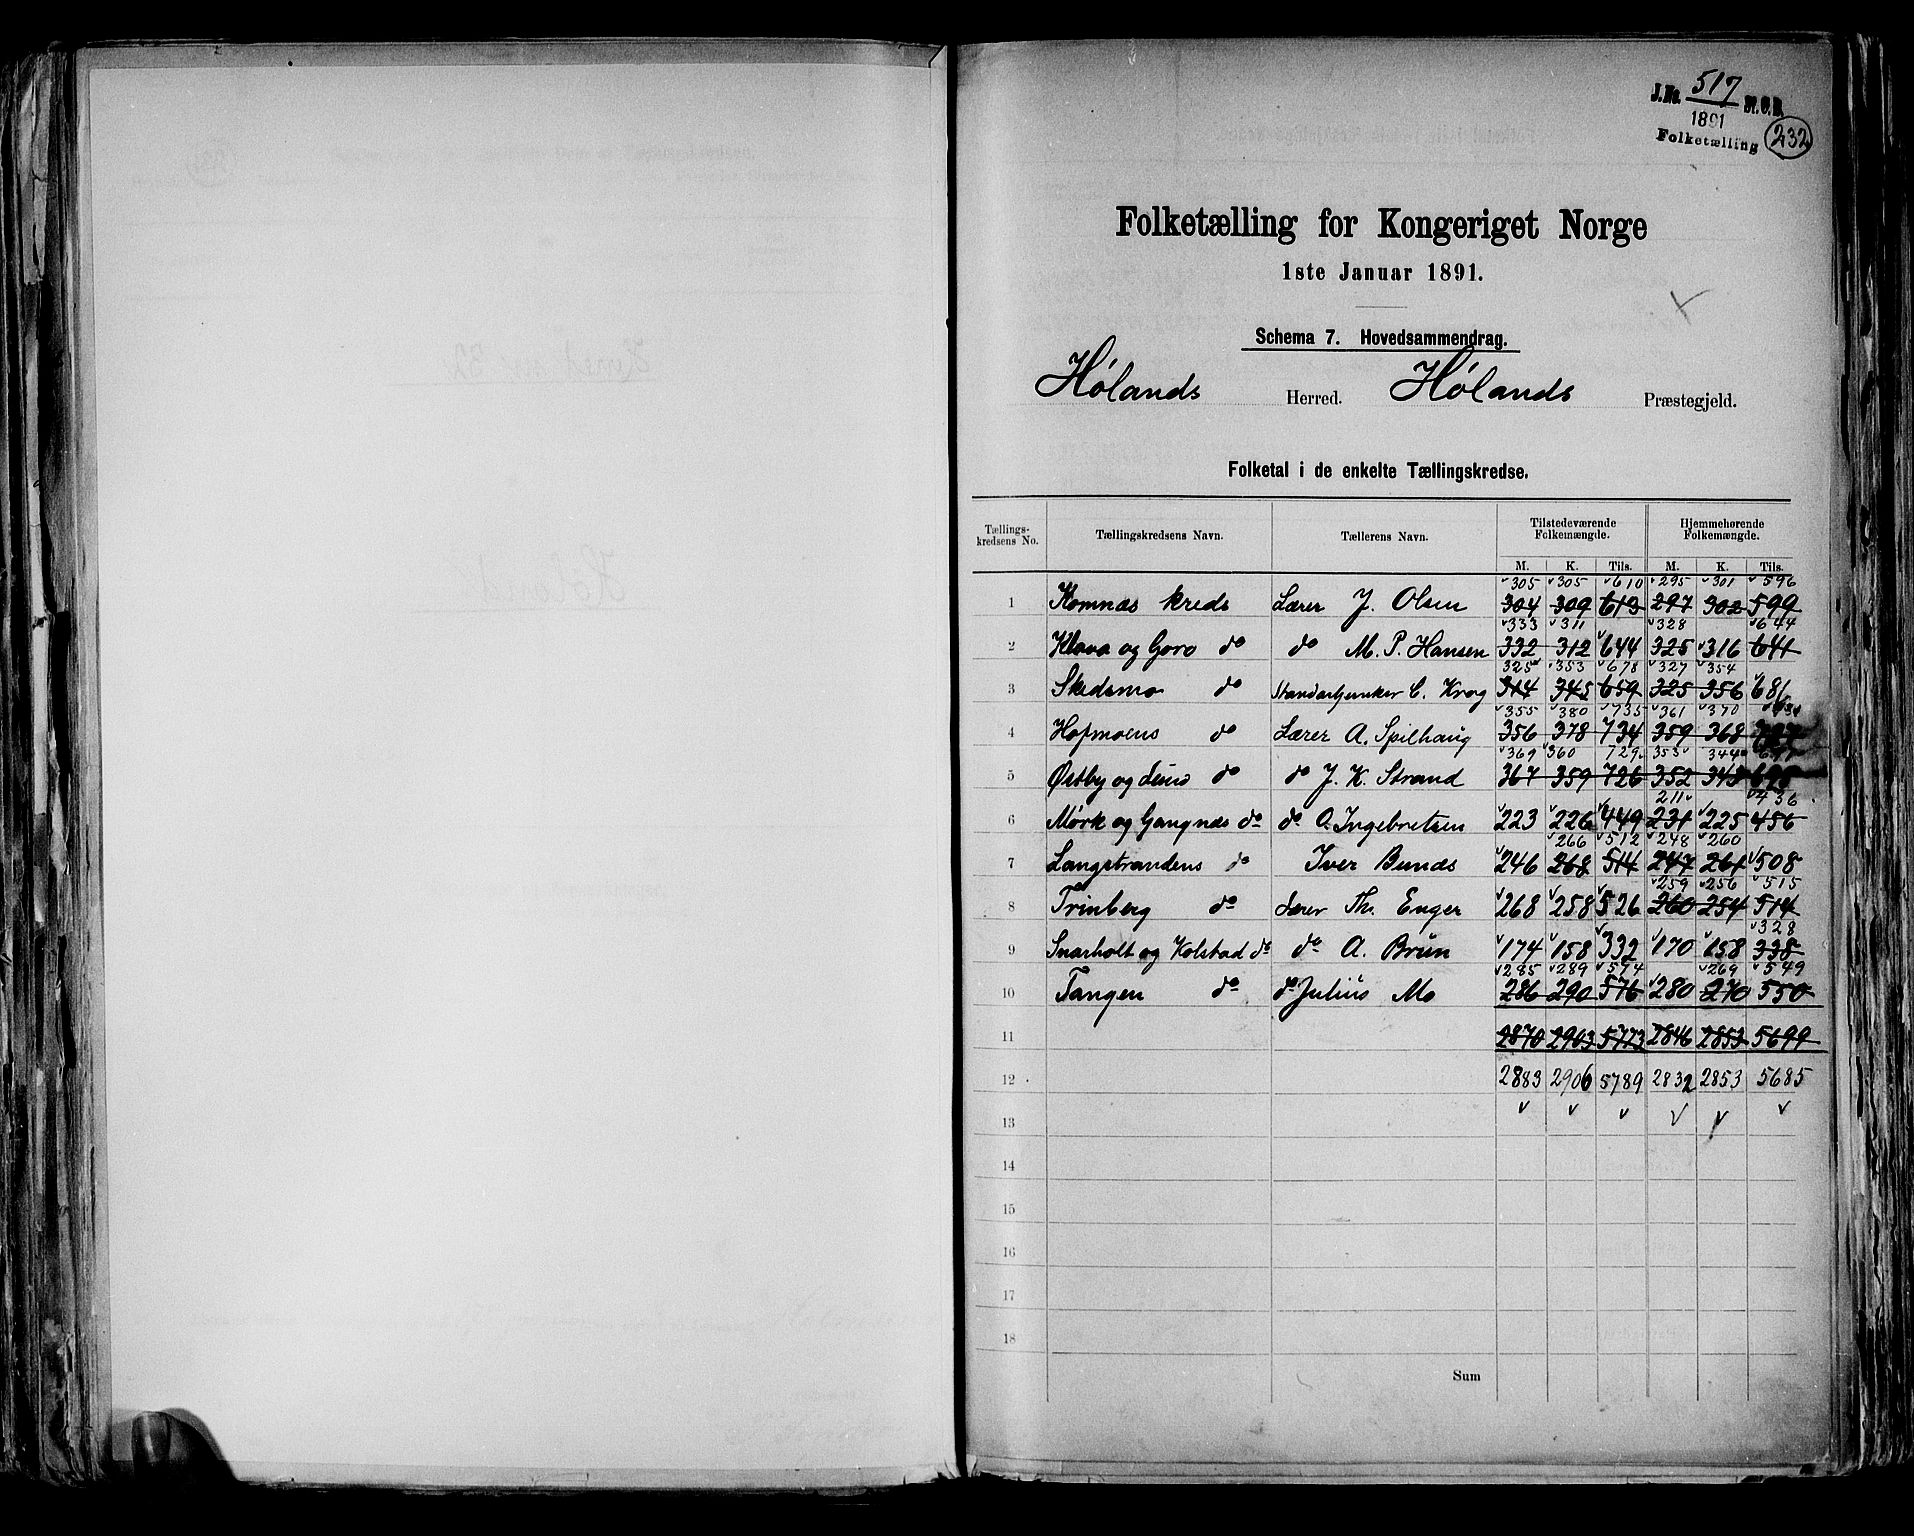 J.No. 517 St. C. B.
1891
Folketælling
232
Folketælling for Kongeriget Norge
1ste Januar 1891.
Schema 7. Hovedsammendrag.
Hølands Herred. Hølands Præstegjeld.
Folketal i de enkelte Tællingskredse.
Tællings-kredsens No. Tællingskredsens Navn. Tællerens Navn. Tilstedeværende Folkemængde. Hjemmehørende Folkemængde.
M. K. Tils. M. K. Tils.
305 305 610 295 301 596
1 Komnæs kreds Lærer J. Olsen 304 309 613 297 302 599
333 311 328 644
2 Kløva og Goro do do M. P. Hansen 332 312 644 325 316 641
325 353 678 327 354
3 Skedsmo do Standartjunker C. Krog 314 345 659 325 356 681
355 380 735 361 370
4 Hofmoens do Lærer A. Spilhaug 356 378 734 359 368 727
369 360 729 353 344
5 Østby og do do J. K. Strand 367 359 726 352 343 695
211 436
6 Mørk og Gangnæs do do O. Ingebretsen 223 226 449 231 225 456
266 512 248 260
7 Langstrandens do Iver Bunæs 246 268 514 247 261 508
259 256 515
8 Trinberg do Lærer Th. Enger 268 258 526 260 254 514
328
9 Snarholt og Kolstad do do A. Brun 174 158 332 170 158 338
285 289 574 269 549
10 Tangen do do Julius Mo 286 290 576 280 270 550
11 2870 2903 5773 2846 2853 5699
12 2883 2906 5789 2832 2853 5685
13
14
15
16
17
18
Sum